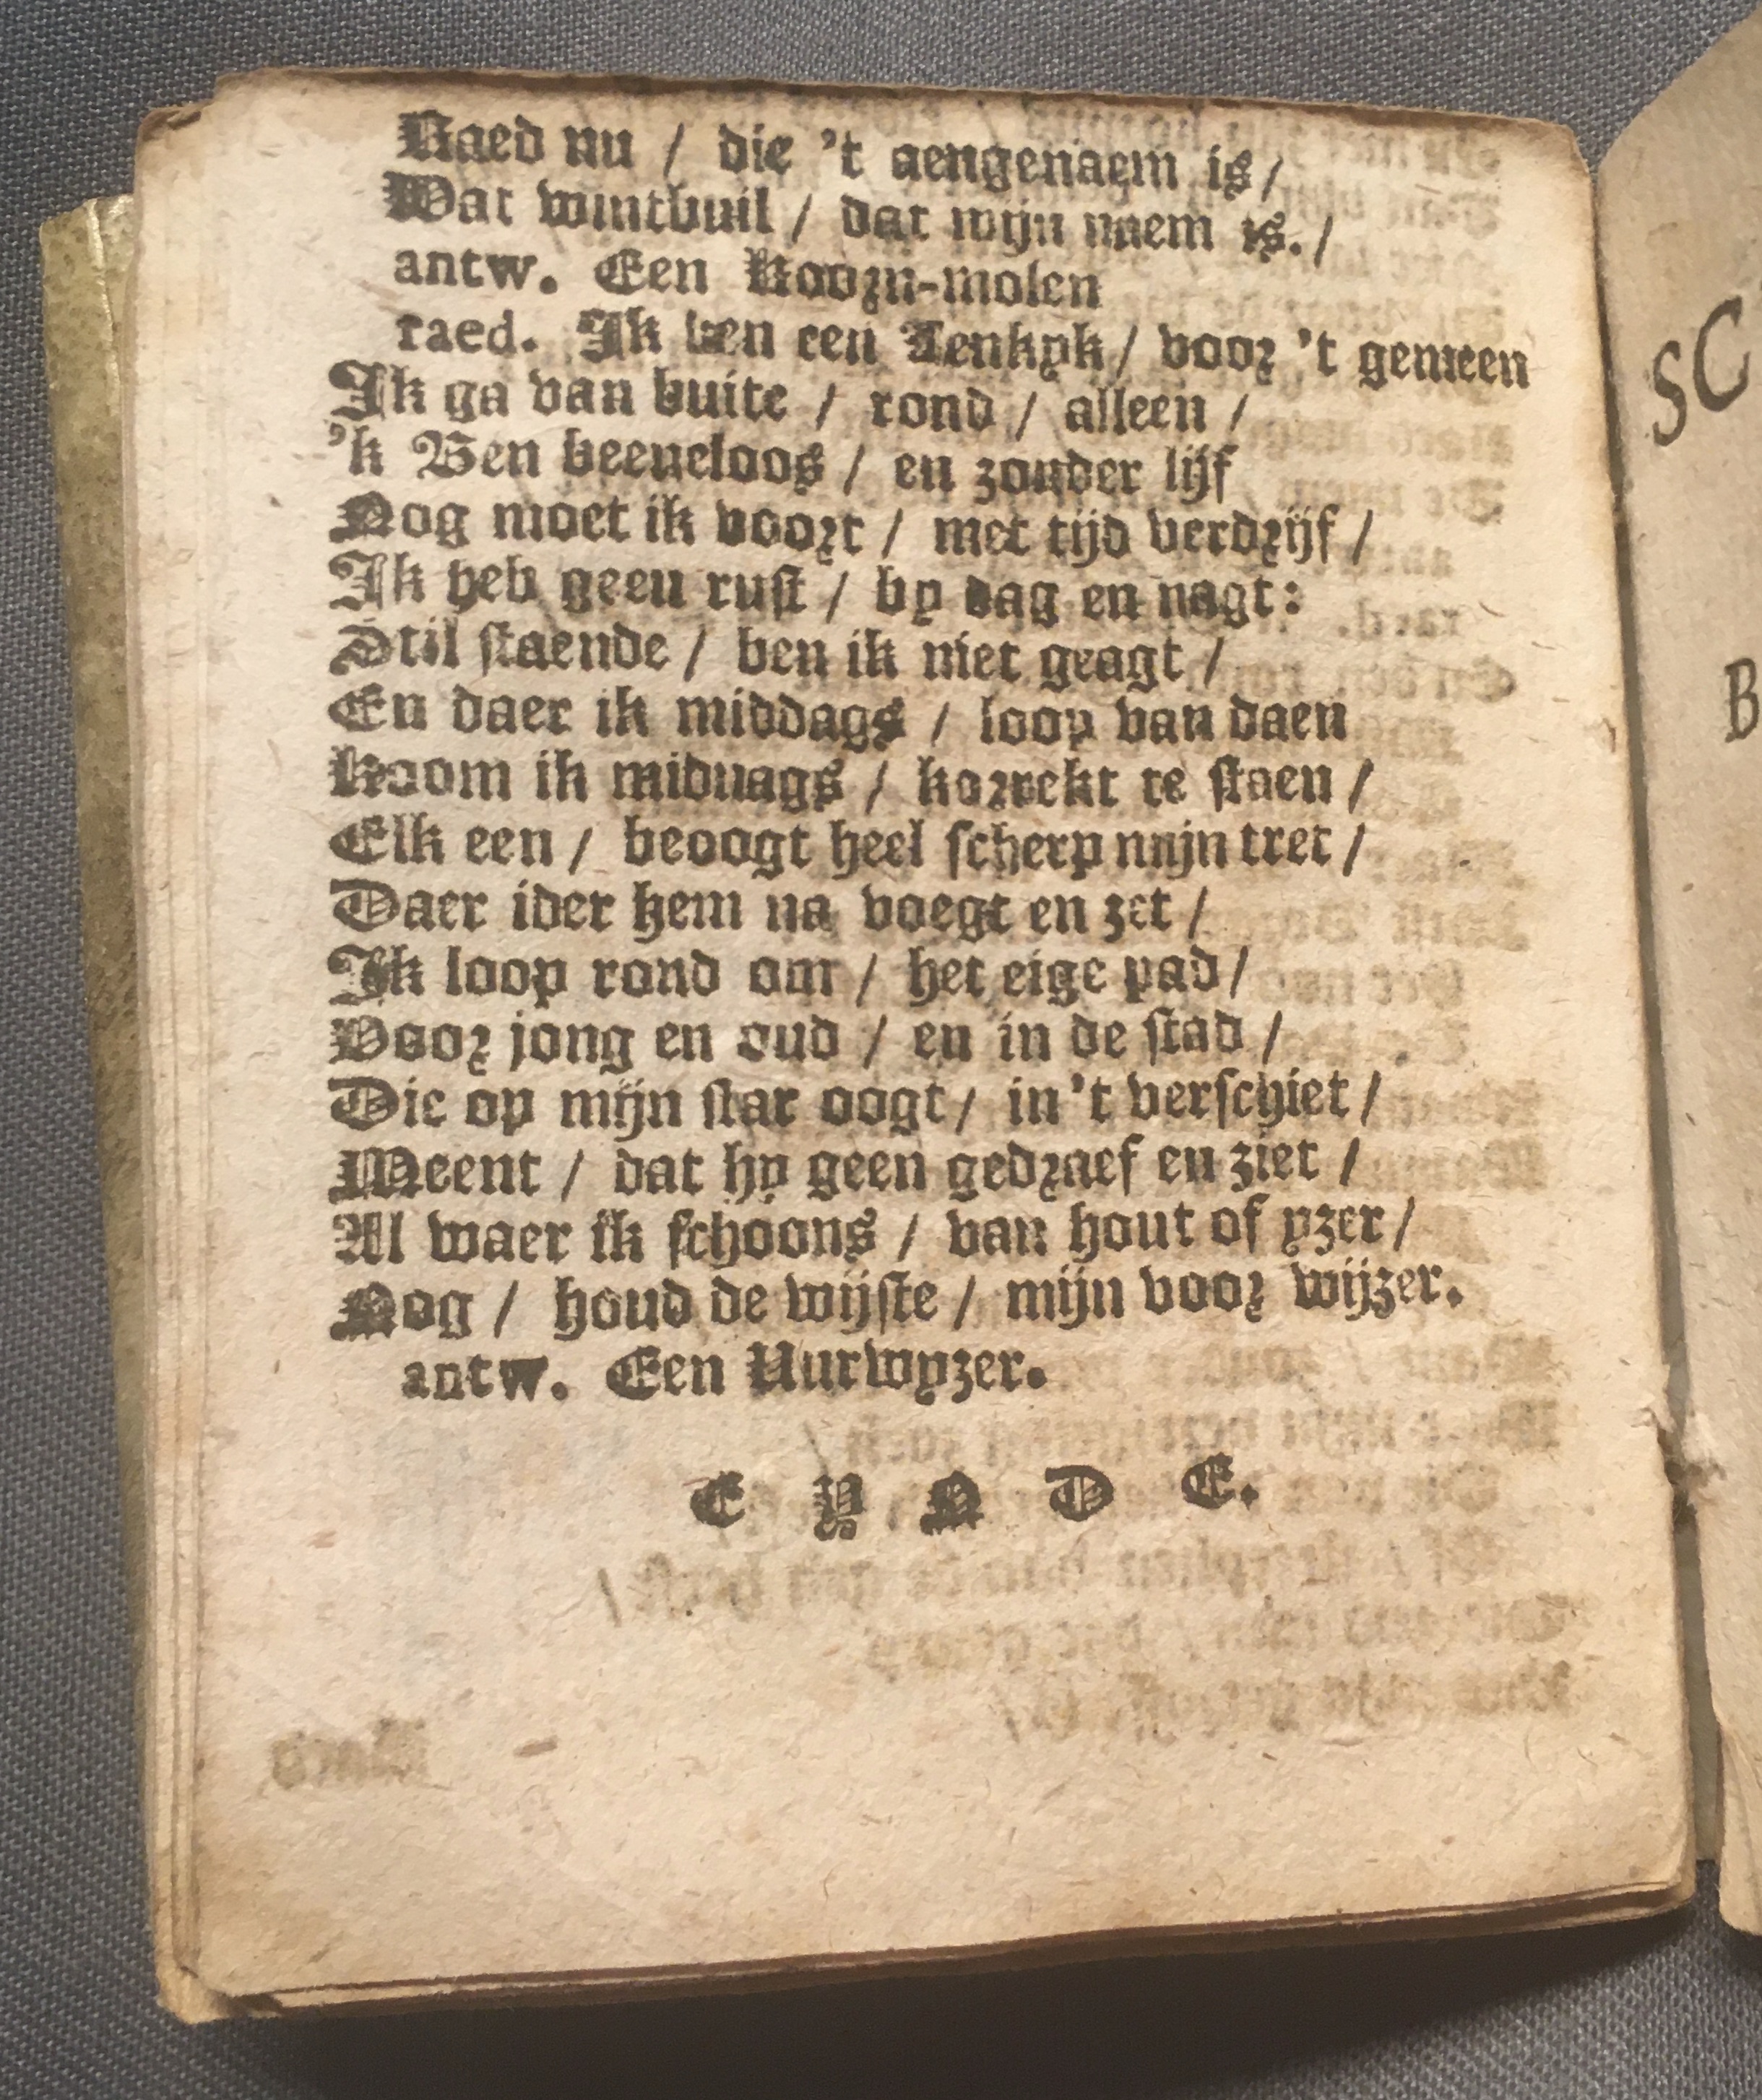 Raed nu / die 't aengenaem is /
Wat wintbuil / dat mijn naem is. /
antw. Een Koorn-molen
raed. Ik ben een Aenkyk / voor 't gemeen
Ik ga van buite / rond / alleen /
'k Ben beeneloos / en zonder lijf
Nog moet ik voort / met tijd verdrijf /
Ik heb geen rust / by dag en nagt:
Stil staende / ben ik niet geagt /
En daer ik middags / loop van daen
Koom ik midnags / korrekt te staen /
Elk een / beoogt heel scherp mijn tret /
Daer ider hem na voegt en zet /
Ik loop rond om / het eige pad /
Voor jong en oud / en in de stad /
Die op mijn star oogt / in 't verschiet /
Meent / dat hy geen gedraef en ziet /
Al waer ik schoons / van hout of yzer /
Nog / houd de wijste / mijn voor wijzer.
antw. Een Uurwyzer.
E Y N D E.
SC
B